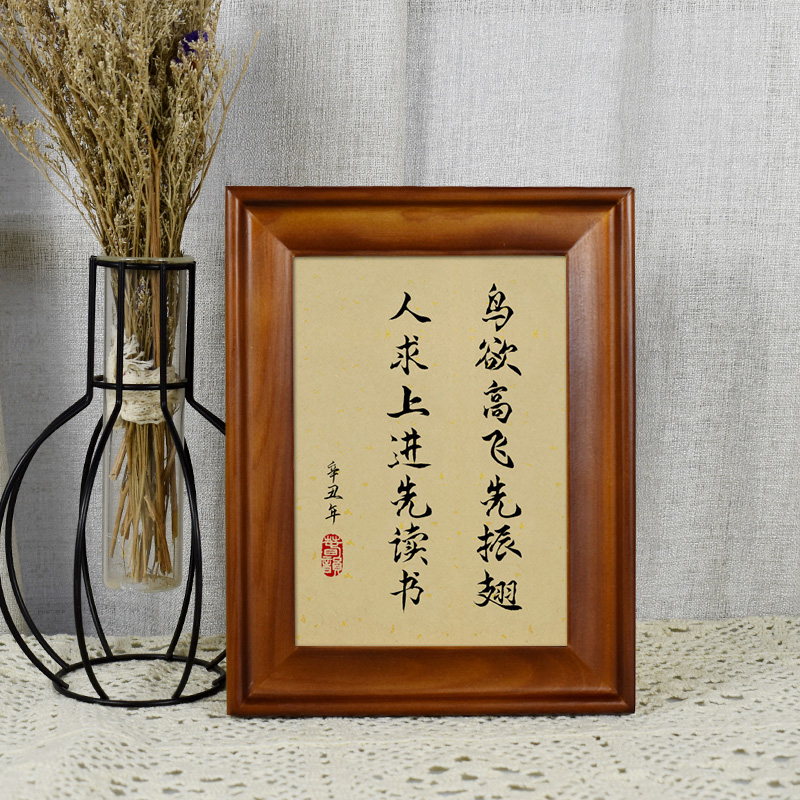 鸟欲高飞先振翅
人求上进先读书
辛丑年